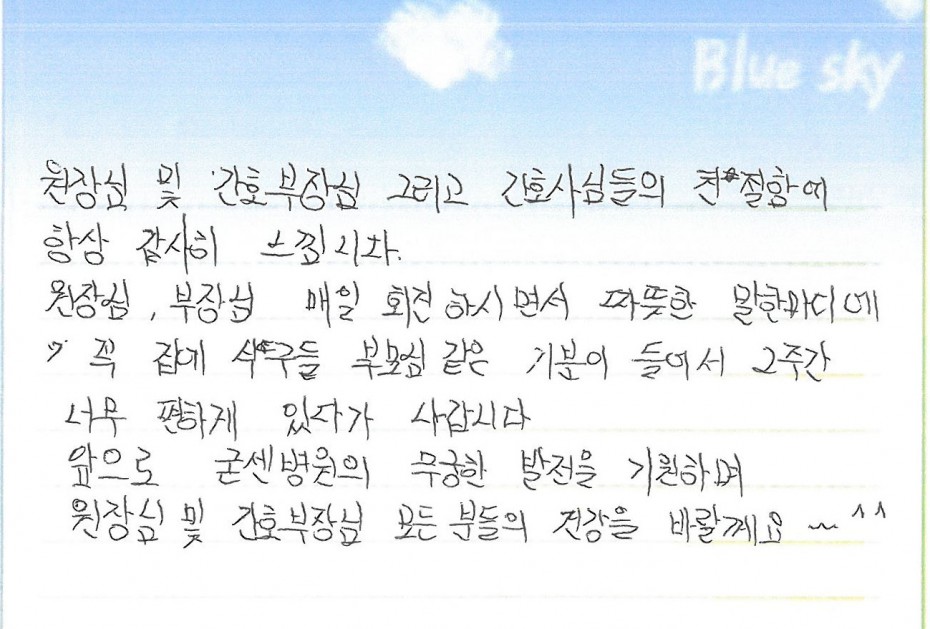 Blue sky
원장님 및 간호부장님 그리고 간호사님들의 친절함에
항상 감사히 느낍니다.
원장님, 부장님 매일 회진하시면서 따뜻한 말한마디에
꼭 집에 식구들 부모님 같은 기분이 들어서 2주간
너무 편하게 있다가 사갑니다
앞으로 굳센병원의 무궁한 발전을 기원하며
원장님 및 간호부장님 모든 분들의 건강을 바랄께요 ~ ^^